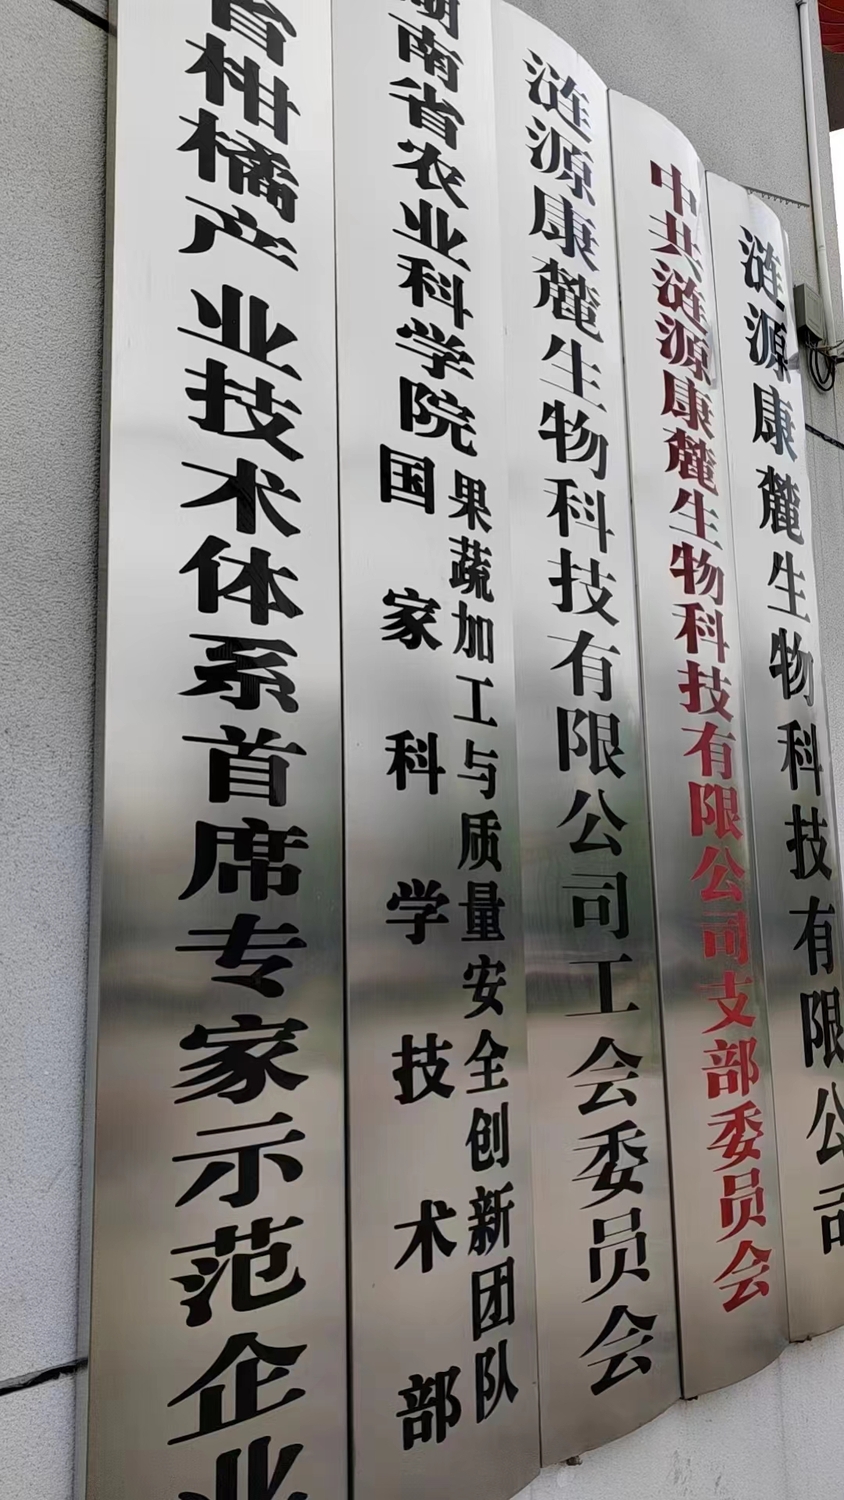 省柑橘产业技术体系首席专家示范企业
湖南省农业科学院
国家科学技术部
果蔬加工与质量安全创新团队
涟源康麓生物科技有限公司工会委员会
中共涟源康麓生物科技有限公司支部委员会
涟源康麓生物科技有限公司